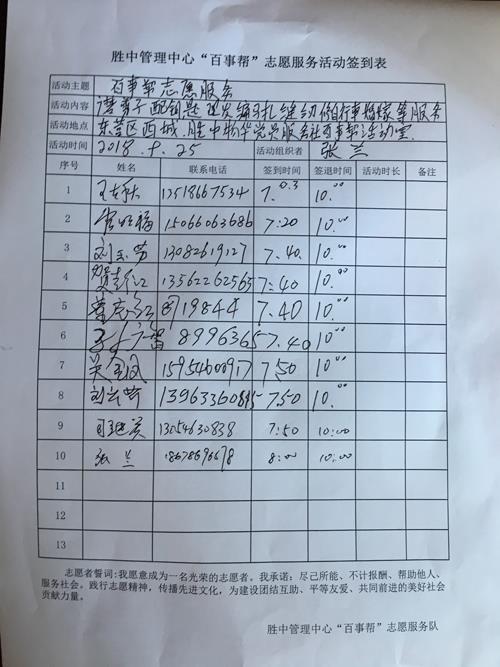 胜中管理中心“百事帮”志愿服务活动签到表
活动主题 百事帮志愿服务
活动内容 磨剪子 配钥匙 理发 缝纫 修自行车 等服务
活动地点 东营区西城 胜中物华党员服务社百事帮活动室
活动时间 2018.8.25 活动组织者 张兰
序号 姓名 联系电话 签到时间 签退时间 活动时长 备注
1 13518667534 7.03 10.00
2 15066063686 7:20 10.00
3 13082619127 7.40 10.00
4 13562262565 7:40 10.00
5 19844 7.40 10.00
6 8996365 7.40 10.00
7 吴金凤 15954600917 7:50 10.00
8 刘云岭 13963360815 7:50 10.00
9 13054630838 7:50 10:00
10 张兰 18678696678 8:00 10:00
11
12
13
志愿者誓词:我愿意成为一名光荣的志愿者。我承诺：尽己所能、不计报酬、帮助他人、
服务社会。践行志愿精神，传播先进文化，为建设团结互助、平等友爱、共同前进的美好社会
贡献力量。
胜中管理中心“百事帮”志愿服务队